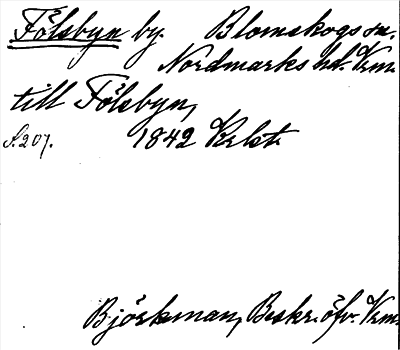 Fölsbyn by. Blomskogs sn.
Nordmarks hd. Vrm.
till Fölsbyn,
S. 207. 1842 Krlst.
Björkman, Beskr. öfv. Vrm.